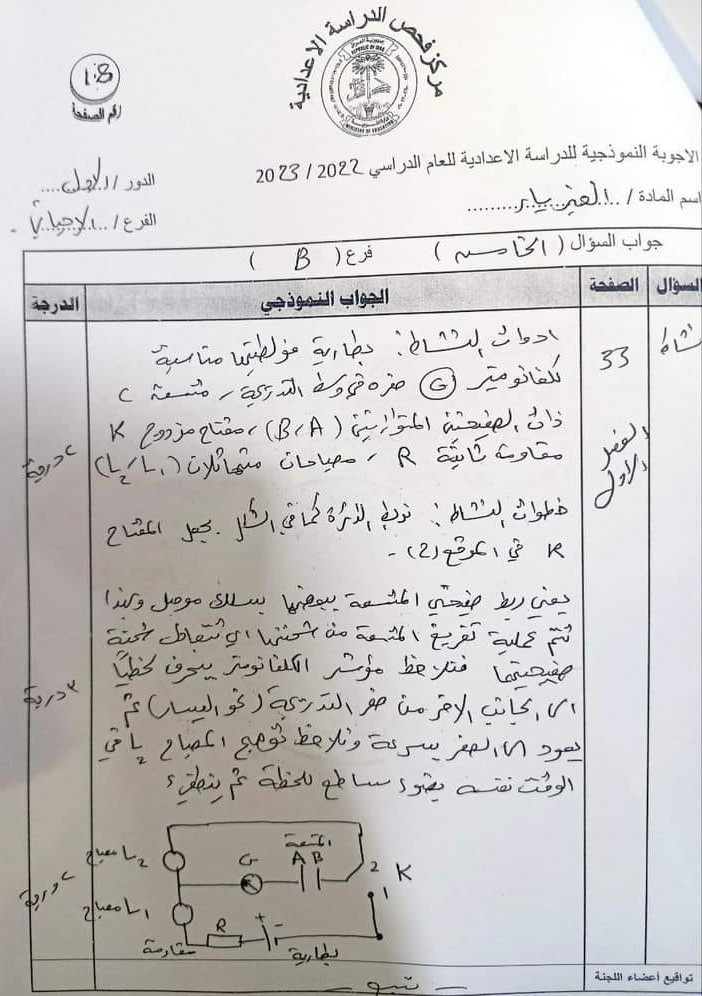 مركز فحص الدراسة الاعدادية
REPUBLIC OF IRAQ
MINISTRY OF EDUCATION
1:8
رقم الصفحة
الاجوبة النموذجية للدراسة الاعدادية للعام الدراسي 2022 / 2023
الدور / الاول....
اسم المادة / ..الفيزياء.........
الفرع / ..الاحيائي..
جواب السؤال ( الخامس ) فرع ( B )
السؤال الصفحة الجواب النموذجي الدرجة
نشاط
33
الفصل الاول
ادوات النشاط: بطارية فولطيتها مناسبة
كلفانوميتر G صفره في وسط التدريجة، متسعة C
ذات الصفيحتين المتوازيتين (B، A)، مفتاح مزدوج K
مقاومة ثابتة R، مصباحان متماثلان (L₁، L₂)
٢ درجة
خطوات النشاط: نربط الدائرة كما في الشكل بجعل المفتاح
K في الموقع (2) -
يعني ربط صفيحتي المتسعة ببعضها بسلك موصل وبهذا
تتم عملية تفريغ المتسعة من شحنتها اي تتعادل شحنة
صفيحتيها فنلاحظ مؤشر الكلفانومتر ينحرف لحظياً
الى الجانب الاخر من صفر التدريجة (نحو اليسار) ثم
يعود الى الصفر بسرعة ونلاحظ توهج المصباح L₂ في
الوقت نفسه بضوء ساطع للحظة ثم ينطفيء
٣ درجة
المتسعة
A B
G
2
K
1
L₂ مصباح
L₁ مصباح
R
مقاومة
+ -
بطارية
٢ درجة
- يتبع -
تواقيع أعضاء اللجنة